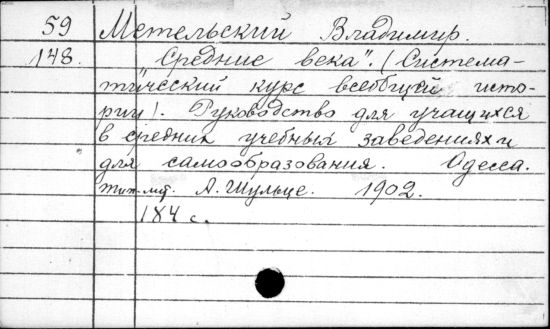 59 Метельский Владимир.
148. "Средние века". (Система-
тический курс всеобщей исто-
рии). Руководство для учащихся
в средних учебных заведениях и
для самообразования. Одесса.
тип.-лит. А. Шульце. 1902.
184 с.